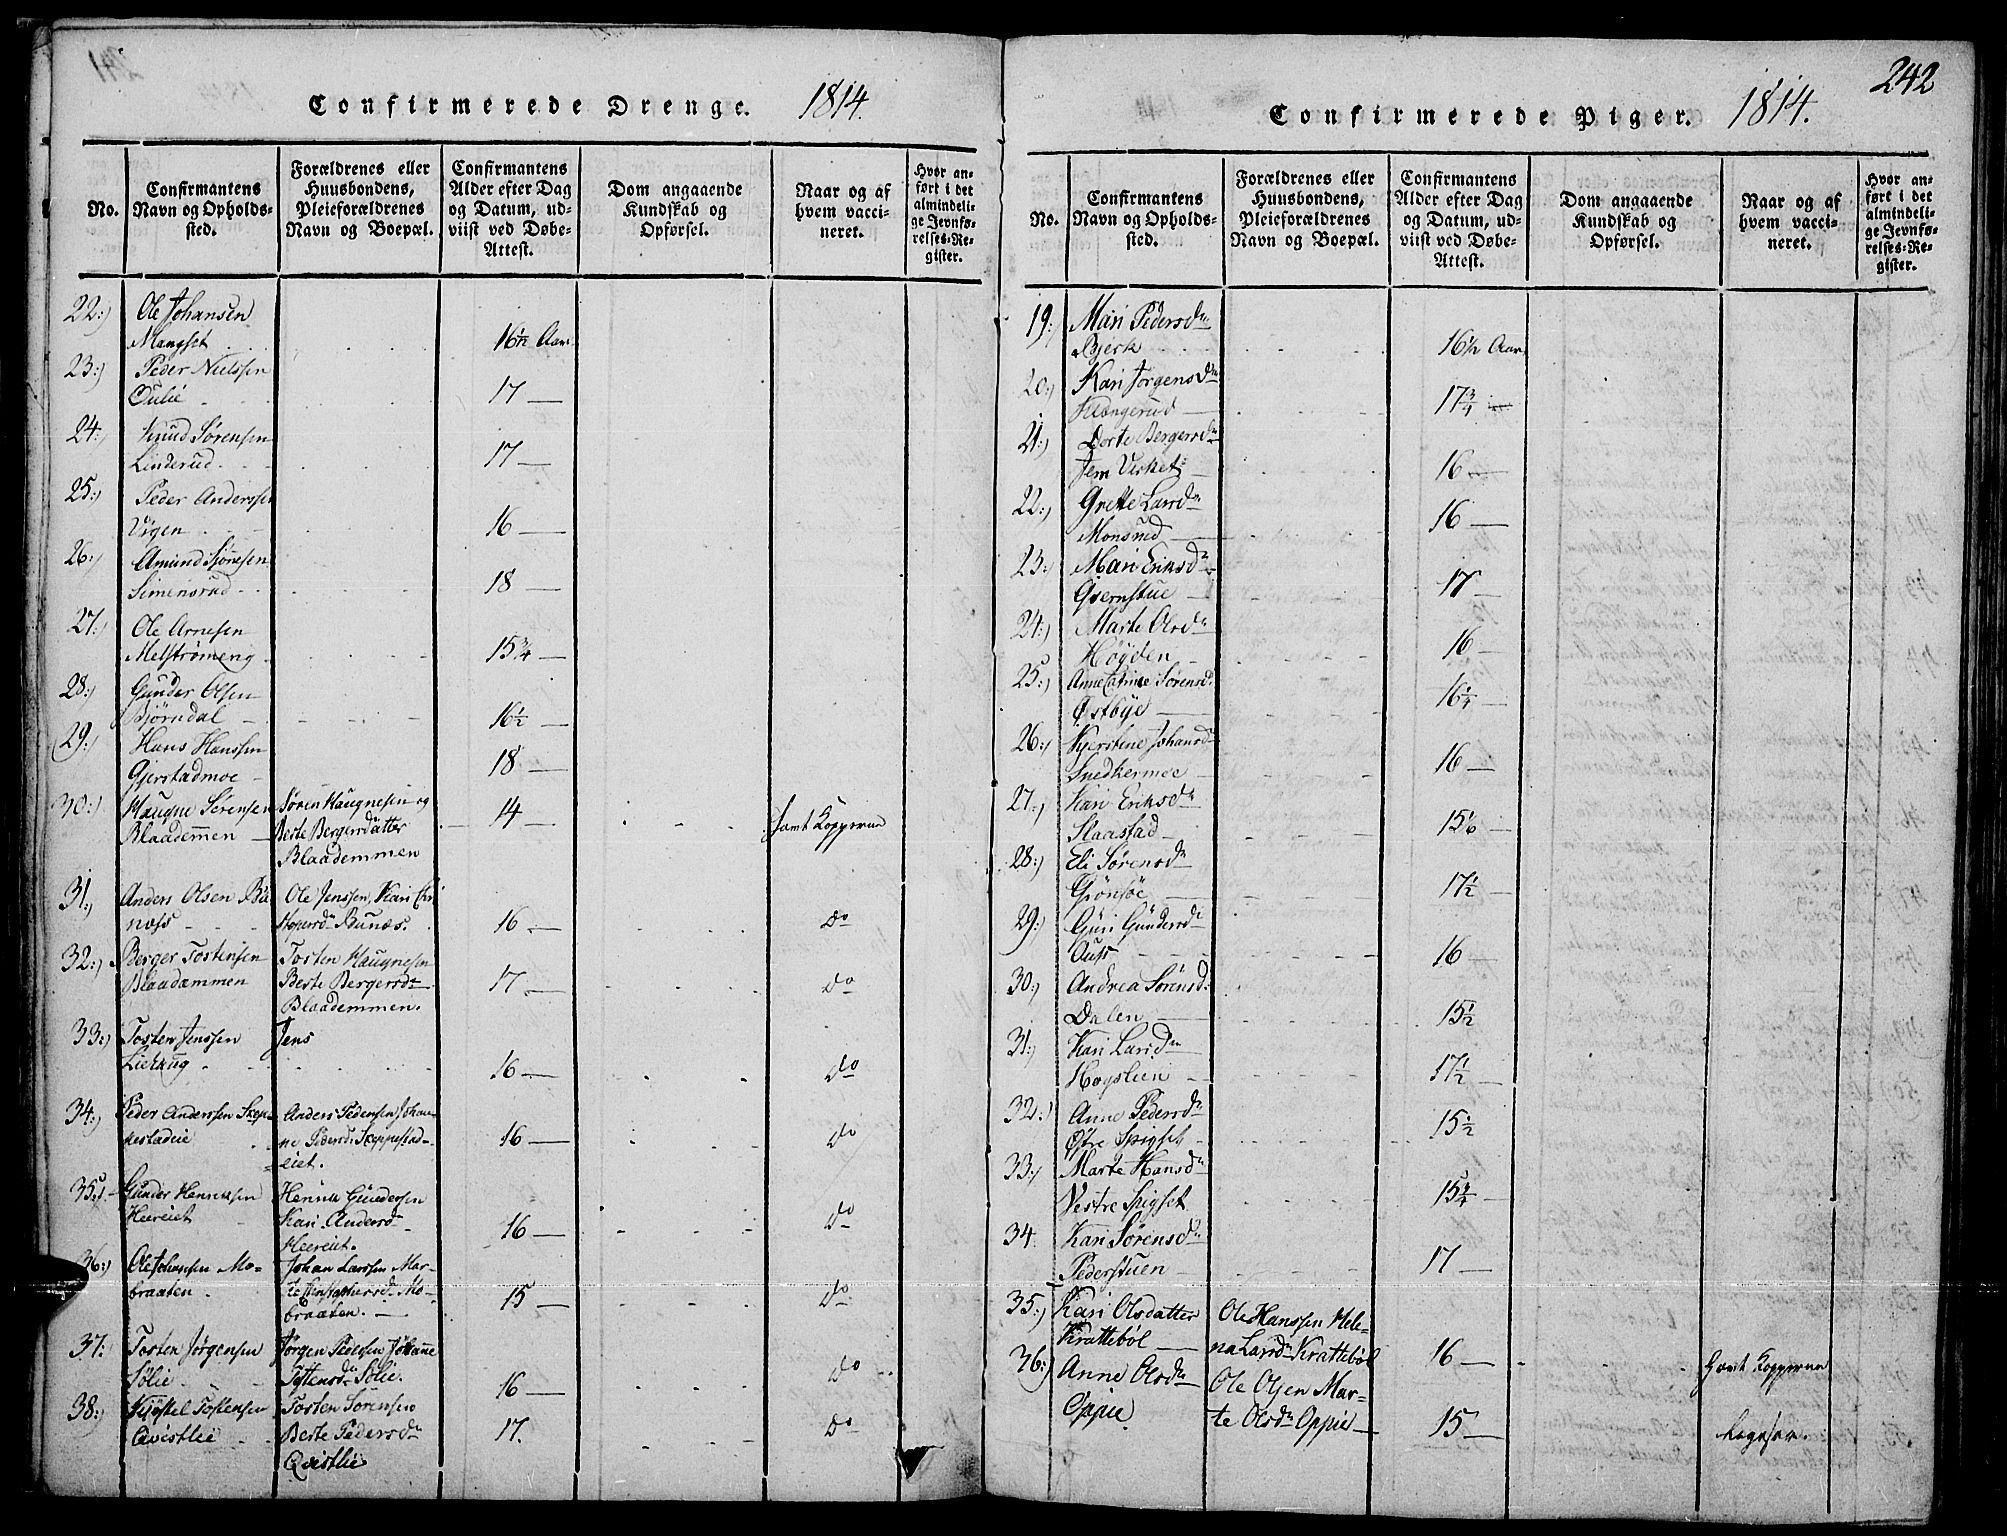 Confirmerede Drenge. 1814.
No.
Confirmantens Navn og Opholdssted.
Forældrenes eller Huusbondens, Pleieforældrenes Navn og Boepæl.
Confirmantens Alder efter Dag og Datum, udviist ved Døbe-Attest.
Dom angaaende Kundskab og Opførsel.
Naar og af hvem vaccineret.
Hvor anført i det almindelige Jevnførelses-Register.
22:) Ole Johansen
Mangset 16½ Aar
23:) Peder Nielsen
Oulie 17 —
24:) Knud Sørensen
Linderud 17 —
25:) Peder Anderssen
Vigen 16 —
26:) Amund Sørensen
Simensrud 18 —
27:) Ole Arnesen
Melstrømeng 15¾ —
28:) Gunder Olsen
Bjørndal 16½ —
29:) Hans Hanssen
Gjerstadmoe 18 —
30:) Haagne Sørensen Søren Haugnesen og
Blaademmen Berte Bergersdatter 14 — havt Kopperne
Blaademmen
31:) Anders Olsen Bu Ole Jenssen, Kari
næss Bunæs. 16 — do
32:) Berger Tostensen Tosten Haugnesen
Blaadammen Berte Bergersdr 17 — do
Blaademmen.
33:) Tosten Jenssen Jens
Liehaug 16 — do
34:) Peder Anderssen Skep- Anders Pedersen Johan-
pestadeie ne Pedersd: Skeppestad- 16 — do
eiet.
35:) Gunder Hennesen Henne Gundersen
Heereiet Kari Andersd 16 — do
Heereiet.
36:) Ole Johansen Mo- Johan Larssen Mar-
braaten. Mo- 15 — do
braaten.
37: Tosten Jørgensen Jørgen Pedersen Johanne
Sølie Tostensd Sølie. 16 — do
38:) Tostensen Tosten Sørensen
Qvestlie Berte Pedersdr 17. do
Qvestlie
242
Confirmerede Piger. 1814.
No.
Confirmantens Navn og Opholdssted.
Forældrenes eller Huusbondens, Pleieforældrenes Navn og Boepæl.
Confirmantens Alder efter Dag og Datum, udviist ved Døbe-Attest.
Dom angaaende Kundskab og Opførsel.
Naar og af hvem vaccineret.
Hvor anført i det almindelige Jevnførelses-Register.
19: Mari Pedersdr
Bjerk 16½ Aar
20:) Kari Jørgensdr
Klongerud 17¾
21:) Dorte Bergersdr
Jem Visket 16 —
22:) Grette Larsdr
Monsrud 16 —
23:) Mari Eriksdr
Gjernstue 17 —
24:) Marte Olsdr
Høyden 16 —
25:) Anne Catrine Sørensd:
Østbye 16¼ —
26:) Kjerstine Johansdr
Snedkermoe 16 —
27:) Kari Eriksdr
Slaastad
28:) Eli Sørensdr
Grønsøe 17½ —
29:) Guri Gundersdr
Ouss 16 —
30:) Andrea Sørensd:
Dalen 15½
31:) Kari Larsdr
Høgslien 17½ —
32:) Anne Pedersdr
Østre Spigset 15½
33:) Marte Hansdr
Vestre Spigset 15¾ —
34. Kari Sørensdr
Pederstuen 17 —
35:) Kari Olsdatter Ole Hanssen Hele-
Krattebøl na Larsdr Krattebøl 16 — havt Kopperne
36:) Anne Olsdr Ole Olsen Mar-
Oppie te Olsdr Oppie 15 — ligesaa.